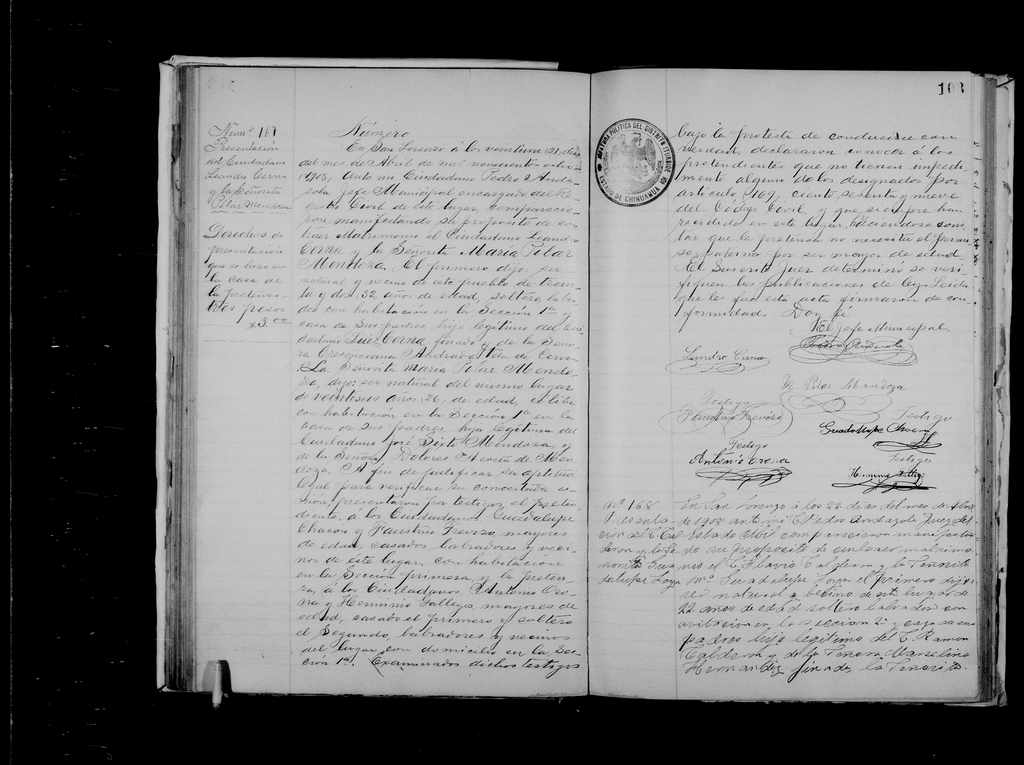 Núm.º 167
Presentación
del Ciudadano
Leandro Cerna
y la Señorita
Pilar Mendoza
Derechos de
presentación
que se hizo en
la casa de
la pretensa
tres pesos
$3.00
Número
En San Lorenzo á los veintiun 21 dias
del mes de Abril de mil novecientos ocho
1908, ante mi Ciudadano Pedro Anda-
zola jefe Municipal encargado del Re-
gistro Civil de este lugar, comparecie-
ron manifestando su propósito de con-
traer Matrimonio el Ciudadano Leandro
Cerna y la Señorita María Pilar
Mendoza. El primero dijo: ser
natural y vecino de este pueblo de trein-
ta y dos, 32 años de edad, soltero, labra-
dor con habitación en la Sección 1ª y
casa de sus padres, hijo legítimo del Ciu-
dadano Luz Cerna, finado y de la Seño-
ra Crescenciana Andrade Vda. de Cerna
La Señorita María Pilar Mendo-
za, dijo: ser natural del mismo lugar
de veintiseis años, 26, de edad, célibe
con habitación en la Sección 1ª en la
casa de sus padres, hija legítima del
Ciudadano José Sixto Mendoza, y
de la Señora Dolores de Men-
doza. A fin de justificar su aptitud
legal para verificar su concertada u-
nión, presentaron por testigos, el preten-
diente, á los Ciudadanos Guadalupe
Chacon y Faustino Trevizo, mayores
de edad, casados, labradores y veci-
nos de este lugar, con habitación
en la Sección primera, y la preten-
sa, á los Ciudadanos Antonio Oro-
na y Herminio Vallejo, mayores de
edad, casado el primero y soltero
el Segundo, labradores y vecinos
del lugar, con domicilio en la Sec-
ción 1ª. Examinados dichos testigos
103
JEFATURA POLITICA DEL DISTRITO ITURBIDE
ESTADO DE CHIHUAHUA
bajo la protesta de conducirse con
verdad, declararon conocer á los
pretendientes que no tienen impedi-
mento alguno de los designados por
articulo 169, ciento sesenta y nueve
del Código Civil, y que siempre han
residido en este lugar, haciendose cons-
tar que la pretensa no necesita el permi-
so paterno por ser mayor de edad.
El Suscrito Juez determinó se veri-
fiquen las publicaciones de ley. Leida
que les fué esta acta firmaron de con-
formidad. Doy fé
El Jefe Municipal
Pedro Andazola
Leandro Cerna
Mª Pilar Mendoza
Testigo
Faustino Trevizo
Testigo
Guadalupe Chacon
Testigo
Antonio Orona
Testigo
Herminio Vallejo
Nº 168
Presenta-
cion del C.
Calderon y la Se-
ñorita Gua-
dalupe Loya
En San Lorenzo á los 22 dias del mes de Abril
de 1908 ante mi C. Pedro Andazola Juez del
Estado Civil comparecieron manifestan-
do su proposito de contraer matrimo-
nio el C. Flavio Calderon y la Señorita
Mª Guadalupe Loya el primero dijo:
ser natural y vecino de este lugar de
22 años de edad soltero labrador con
habitacion en la seccion 2ª y casa de sus
padres hijo legitimo del C. Ramon
Calderon y de la Señora Marcelina
Hernandez finada, la Señorita